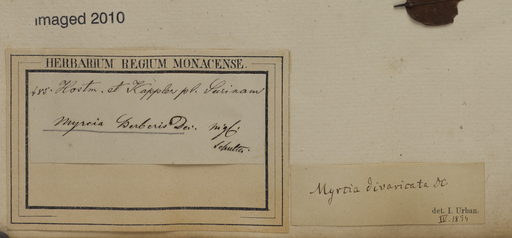 imaged 2010
HERBARIUM REGIUM MONACENSE.
Hostm. et Kappler pl. Surinam
Myrcia Berberis Dec.
Myrcia divaricata DC
det. I. Urban.
IV. 1894